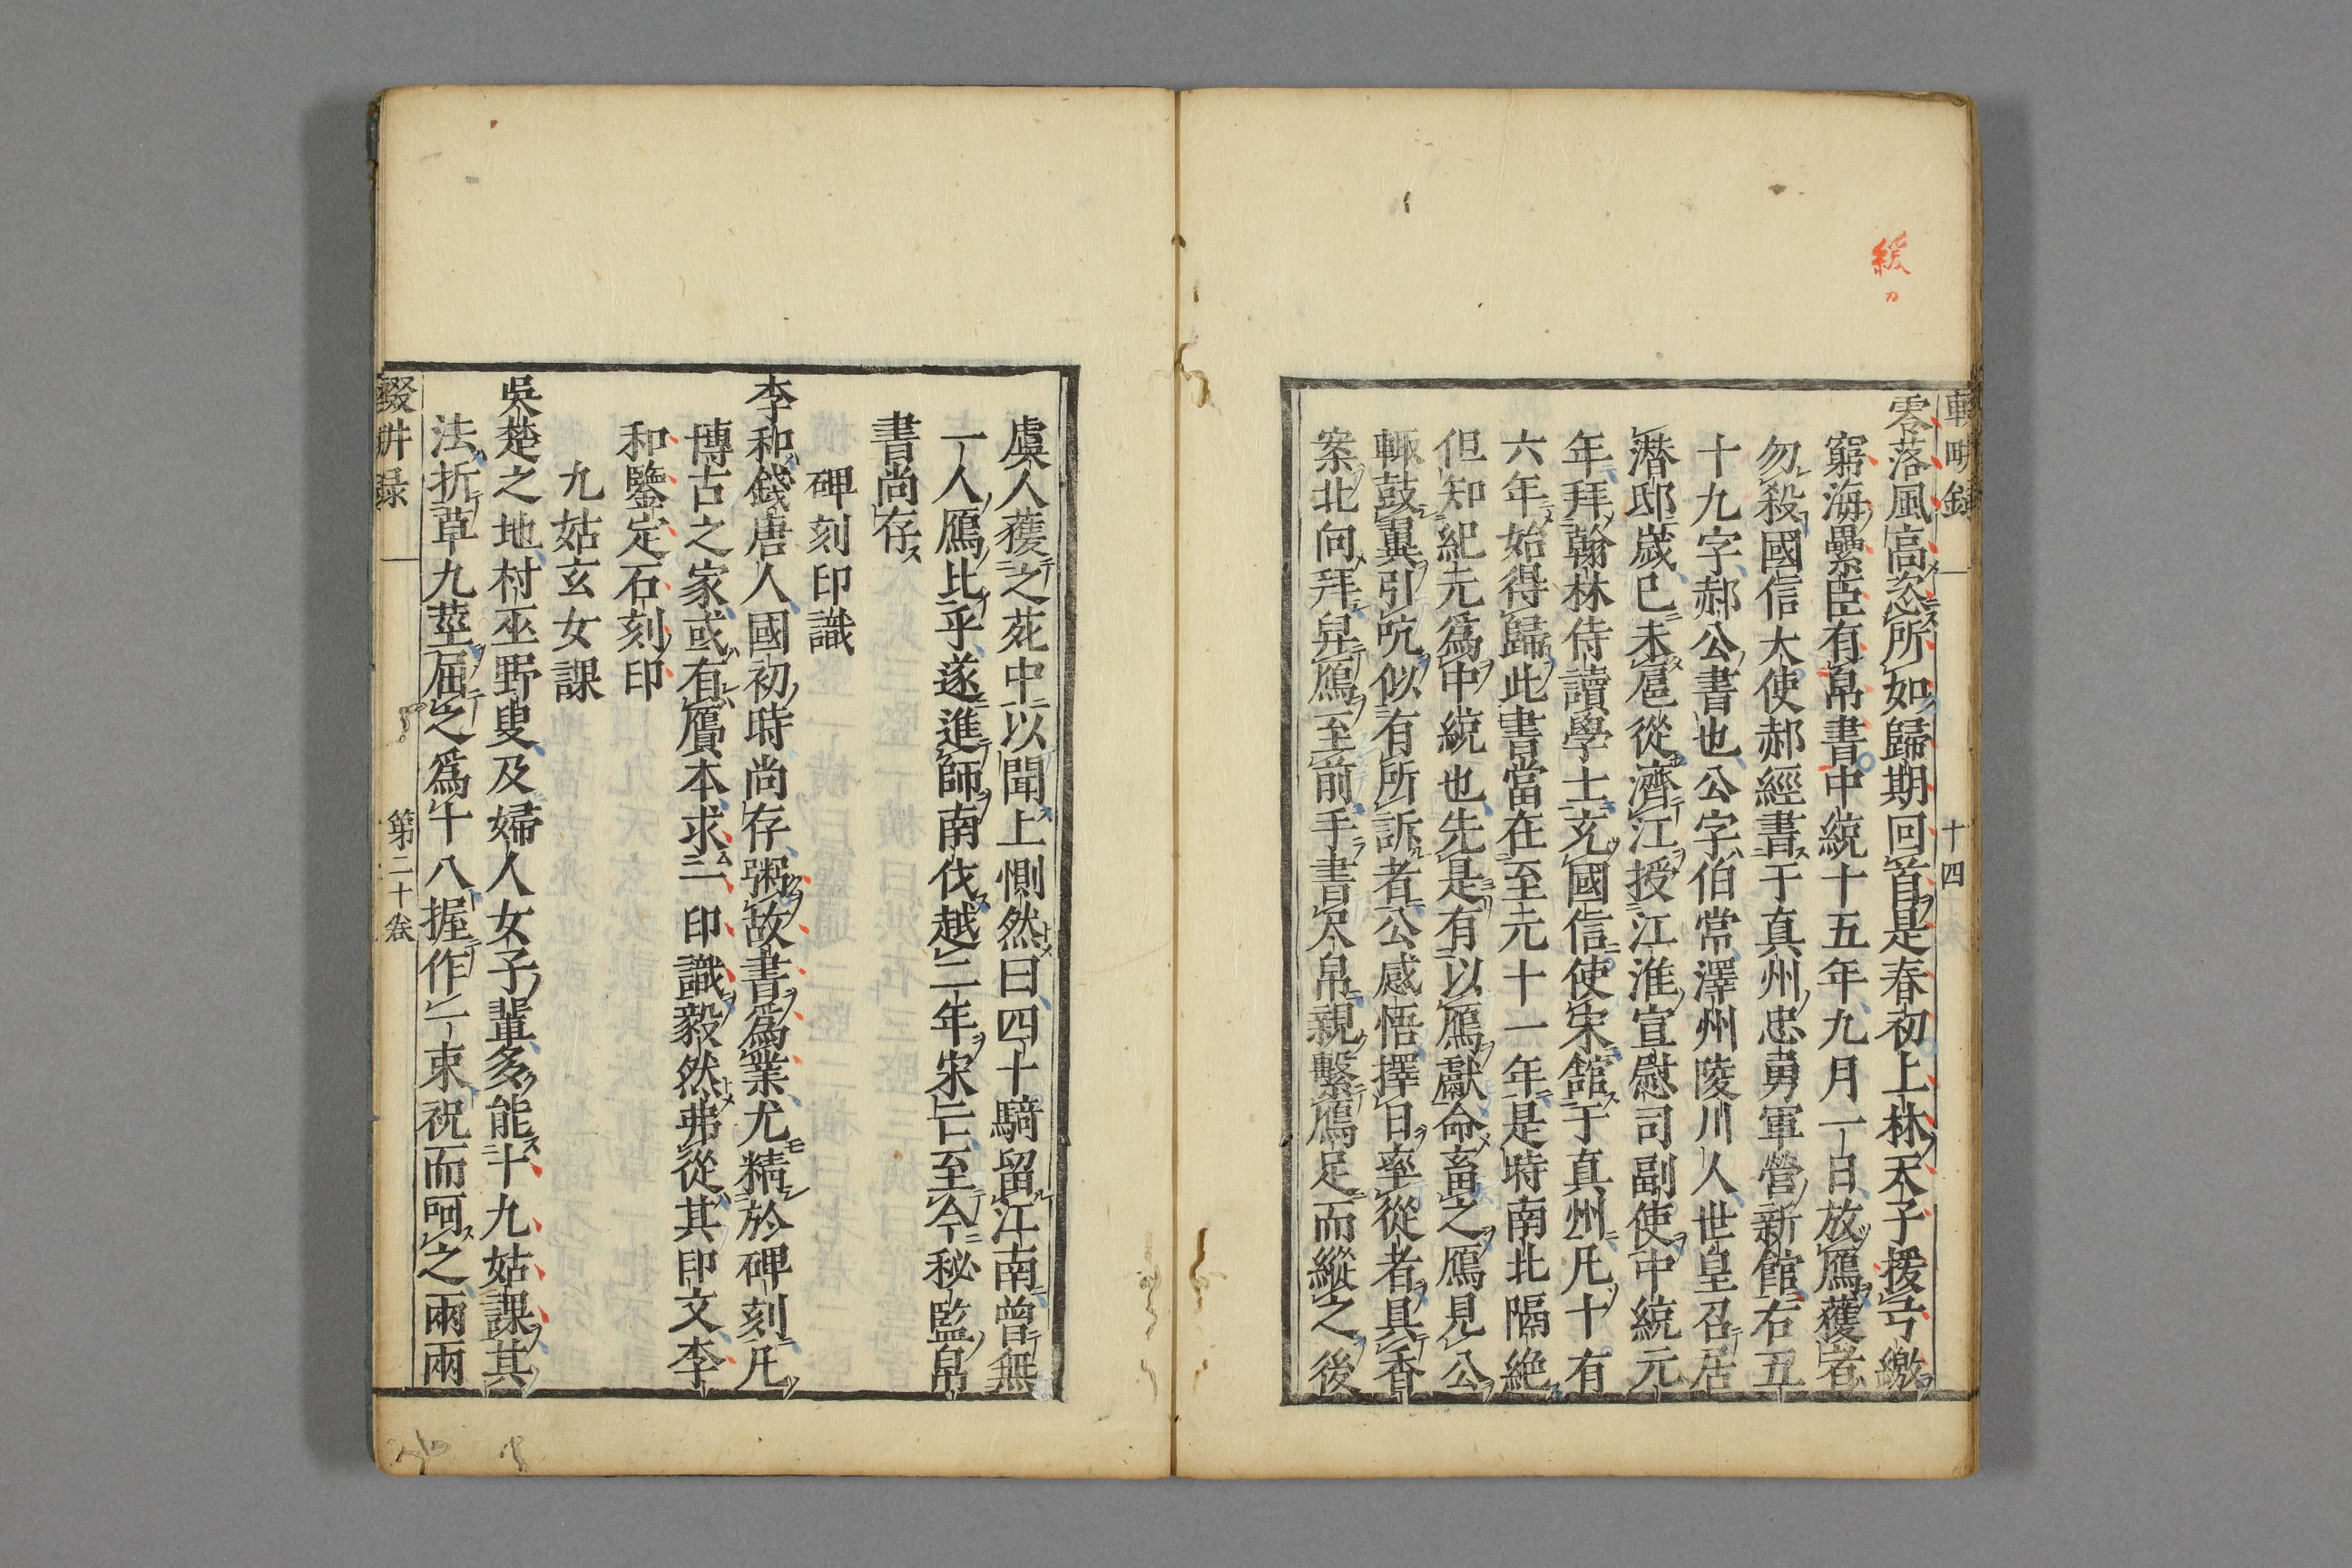 緩カ
輟畊録 十四
零落風高恣所如歸期回首是春初上林天子援弓繳
窮海纍臣有帛書中統十五年九月一日放鴈獲者
勿殺國信大使郝經書于真州忠勇軍營新館右五
十九字郝公書也公字伯常澤州陵川人世皇召居
潜邸歳巳未扈從濟江授江淮宣慰司副使中統元
年拜翰林侍讀學士充國信使宋館于真州凡十有
六年始得歸此書當在至元十一年是時南北隔絶
但知紀元爲中統也先是有以鴈獻命畜之鴈見公
輙鼓翼引吭似有所訴者公感悟擇日率從者具香
案北向拜舁鴈至前手書尺帛親繫鴈足而縱之後
虞人獲之苑中以聞上惻然曰四十騎留江南曾無
一人鴈比乎遂進師南伐越二年宋亡至今秘監帛
書尚存
碑刻印識
李和錢唐人國初時尚存粥故書爲業尤精於碑刻凡
博古之家或有贗本求一印識毅然弗從其印文李
和鑒定石刻印
九姑玄女課
吳楚之地村巫野叟及婦人女子輩多能卜九姑課其
法折草九莖屈之爲十八握作一束祝而呵之兩兩
輟畊録 第二十卷